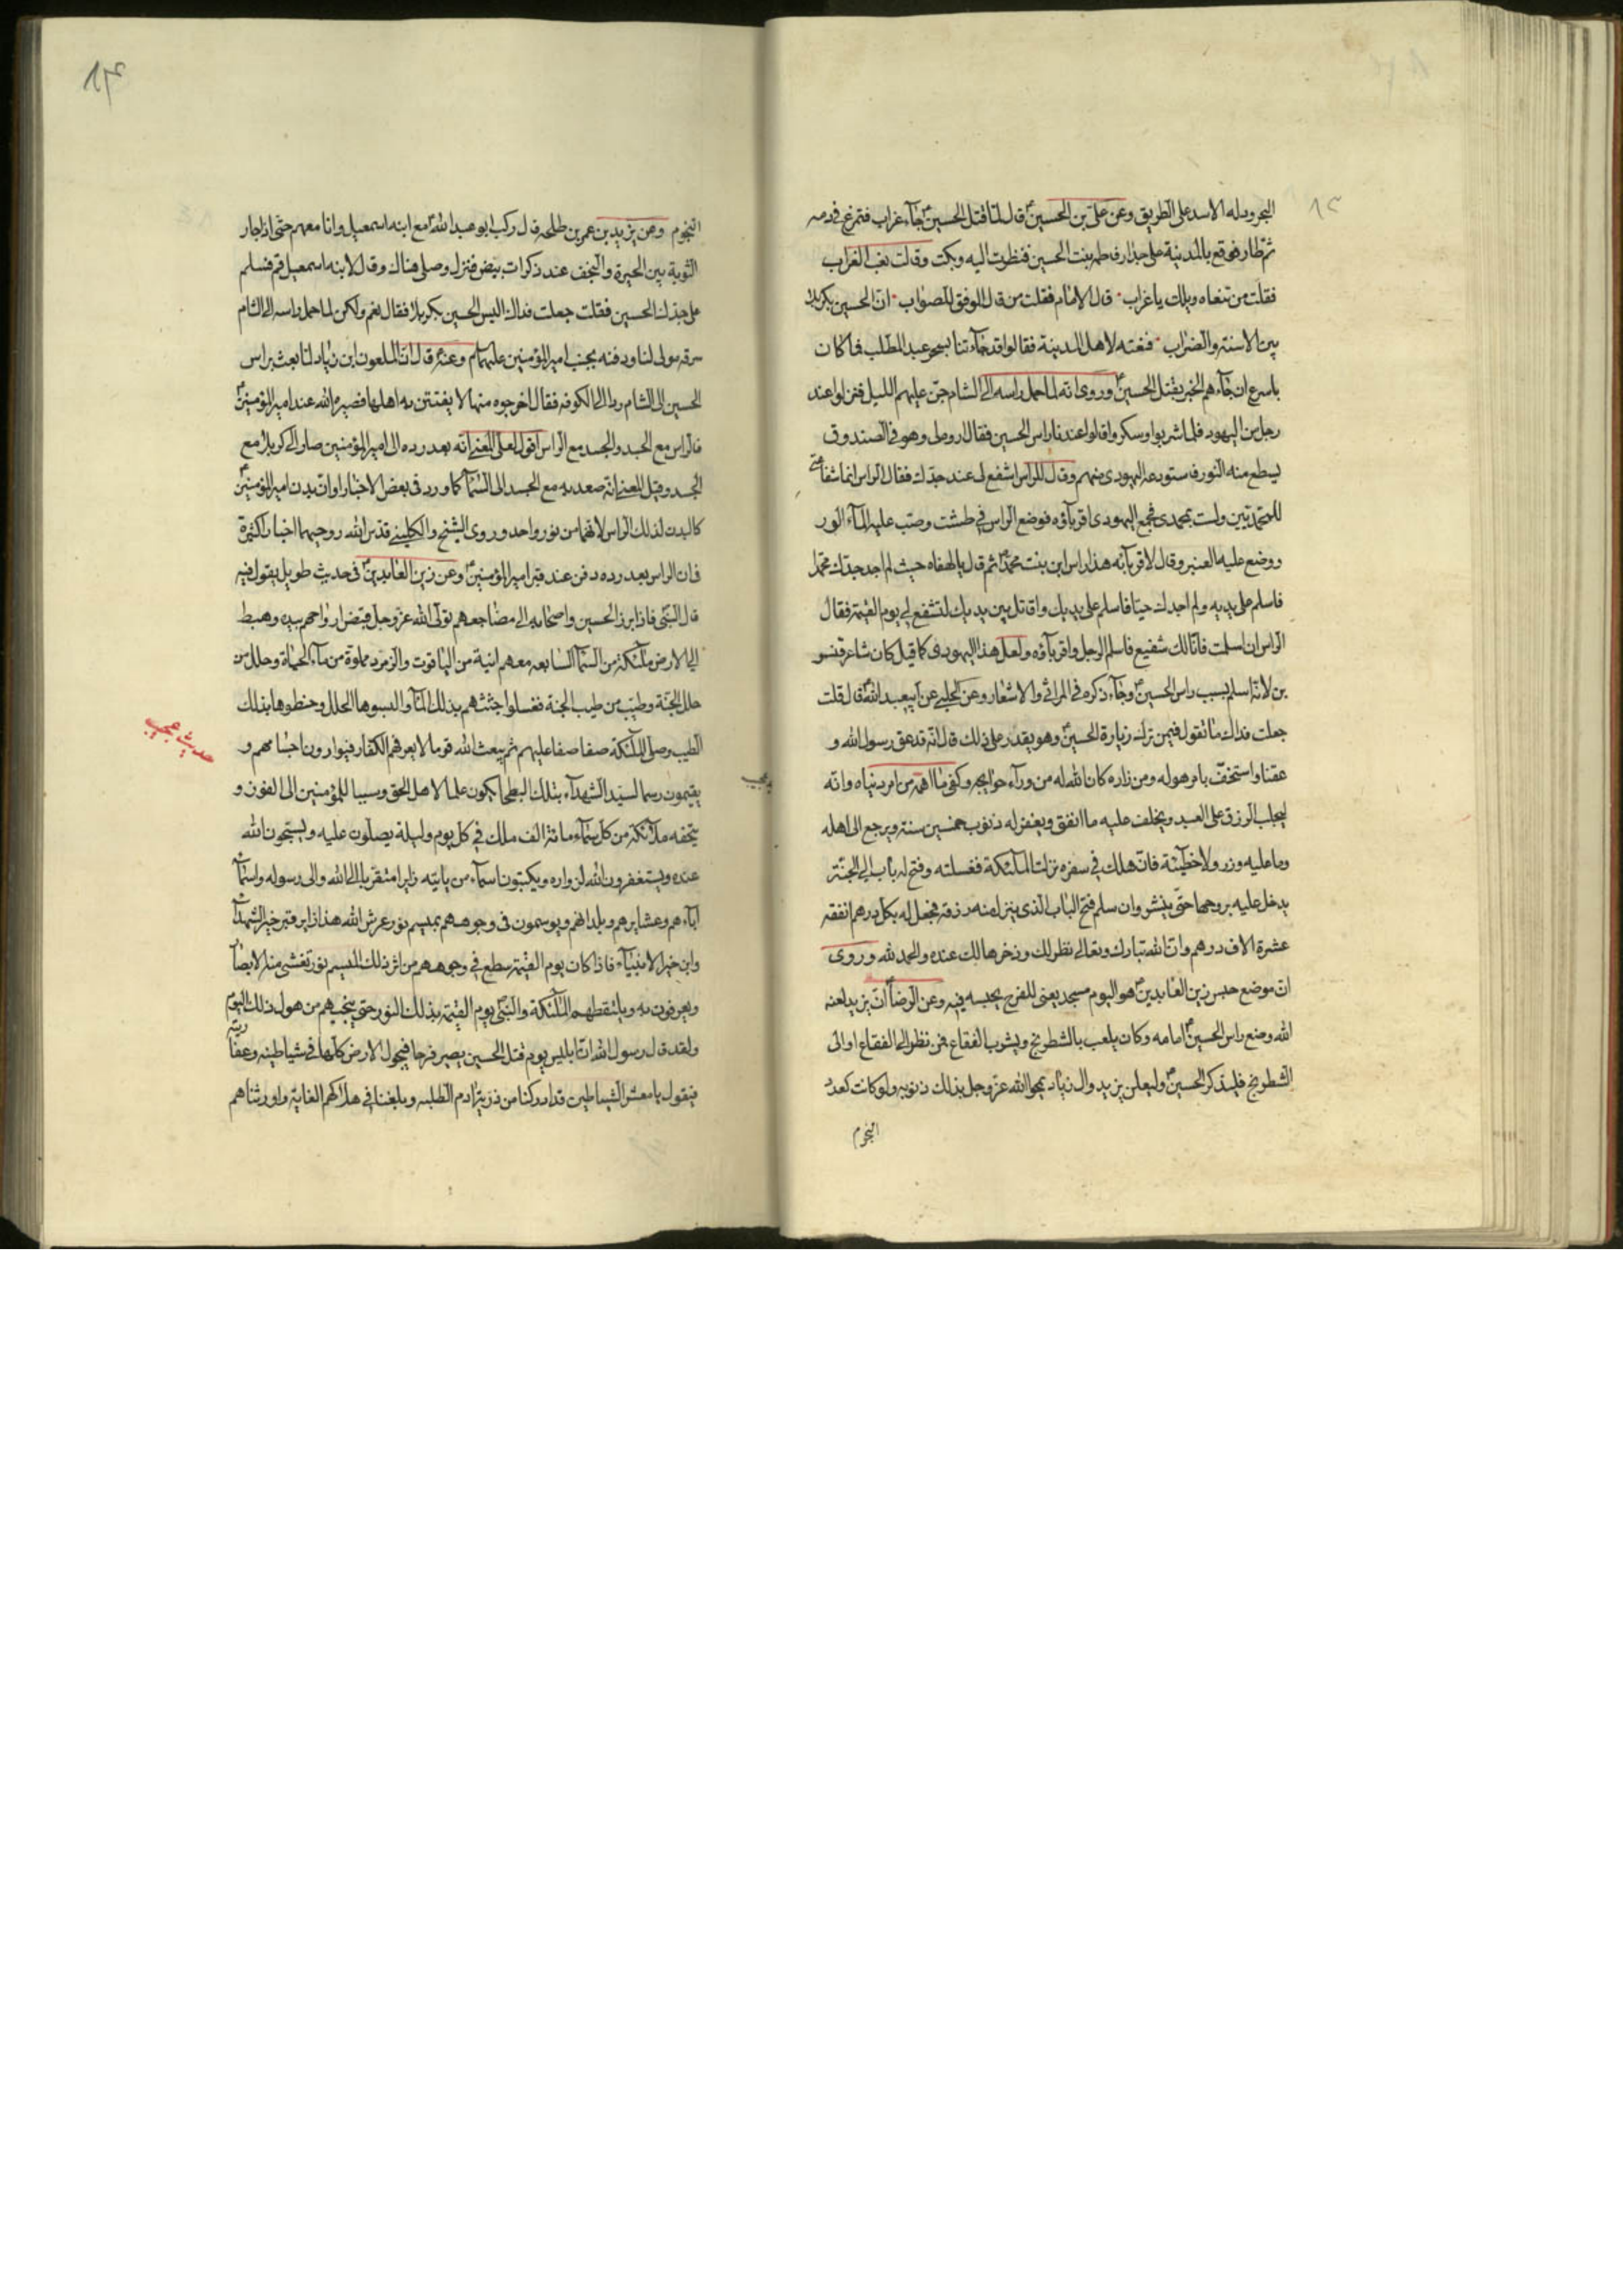 البحر ودله الاسد على الطريق وعن علي بن الحسين ع قال لما قتل الحسين ع جاء غراب فتمرغ في دمه
ثم طار فوقع بالمدينة على جدار فاطمة بنت الحسين فنظرت اليه وبكت وقالت نعب الغراب
فقلت من تنعاه ويلك يا غراب قال الامام فقلت من قال الموفق للصواب ان الحسين بكربلا
بين الاسنة والضراب فنعته لاهل المدينة فقالوا قد جاءتنا بسحر عبد المطلب فما كان
باسرع ان جاءهم الخبر بقتل الحسين ع وروى انه لما حمل راسه الى الشام جن عليهم الليل فنزلوا عند
رجل من اليهود فلما شربوا وسكروا قالوا عندنا راس الحسين فقال اروه لى وهو في الصندوق
يسطع منه النور فاستودعه اليهودى منهم وقال للراس اشفع لى عند جدك فقال الراس انما شفاعتى
للمحمديين ولست بمحمدى فجمع اليهودى اقرباؤه فوضع الراس في طشت وصب عليه الماء الورد
ووضع عليه العنبر وقال لاقربائه هذا راس ابن بنت محمد ص ثم قال يا لهفاه حيث لم اجد جدك محمدا
فاسلم على يديه ولم اجدك حيا فاسلم على يديك واقاتل بين يديك لتشفع لى يوم القيمة فقال
الراس ان اسلمت فانا لك شفيع فاسلم الرجل واقرباؤه ولعل هذا اليهودى كما قيل كان شاعر قنسر
ين لانه اسلم بسبب راس الحسين ع وجاء ذكره في المراثى والاشعار وعن الحلبى عن ابيعبد الله ع قال قلت
جعلت فداك ما تقول فيمن ترك زيارة الحسين ع وهو يقدر على ذلك قال انه قد عق رسول الله و
عقنا واستخف بامر هو له ومن زاره كان الله له من وراء حوايجه وكفى ما اهمه من امر دنياه وانه
ليجلب الرزق على العبد ويخلف عليه ما انفق ويغفر له ذنوب خمسين سنة ويرجع الى اهله
وما عليه وزر ولا خطيئة فان هلك في سفره نزلت الملئكة فغسلته وفتح له باب الى الجنة
يدخل عليه بروحها حتى ينشر وان سلم فتح الباب الذى ينزل منه رزقه فجعل له بكل درهم انفقه
عشرة الاف درهم وان الله تبارك وتعالى نظر لك وذخرها لك عنده والحمد لله وروى
ان موضع حبس زين العابدين ع هو اليوم مسجد يعنى للفرج بحبسه فيه وعن الرضا ع ان يزيد لعنه
الله وضع راس الحسين ع امامه وكان يلعب بالشطرنج ويشرب الفقاع فمن نظر الى الفقاع او الى
الشطرنج فليذكر الحسين ع وليلعن يزيد وال زياد يمحوا الله عز وجل بذلك ذنوبه ولو كانت كعدد
النجوم
النجوم وعن يزيد بن عمر بن طلحه قال ركب ابو عبد الله ع مع ابنه اسمعيل وانا معهم حتى اذا جاز
الثوية بين الحيرة والنجف عند ذكوات بيض فنزل وصلى هناك وقال لابنه اسمعيل قم فسلم
على جدك الحسين فقلت جعلت فداك اليس الحسين بكربلا فقال نعم ولكن لما حمل راسه الى الشام
سرقه مولى لنا ودفنه بجنب امير المؤمنين عليهما م وعنه ع قال ان الملعون ابن زياد لما بعث براس
الحسين الى الشام رد الى الكوفه فقال اخرجوه منها لا يفتتن به اهلها فصيره الله عند امير المؤمنين ع
فالراس مع الجسد والجسد مع الراس اقول لعل المعنى انه بعد رده الى امير المؤمنين صار الى كربلا مع
الجسد وقيل المعنى انه صعد به مع الجسد الى السماء كما ورد فى بعض الاخبار او ان بدن امير المؤمنين ع
كالبدن لذلك الراس لانهما من نور واحد وروى الشيخ والكلينى قدس الله روحيهما اخبارا كثيرة
فان الراس بعد رده دفن عند قبر امير المؤمنين ع وعن زين العابدين ع فى حديث طويل يقول فيه
قال النبى فاذا برز الحسين واصحابه الى مضاجعهم تولى الله عز وجل قبض ارواحهم بيده وهبط
الى الارض ملئكة من السماء السابعه معهم انية من الياقوت والزمرد مملوة من ماء الحياة وحلل من
حلل الجنة وطيب من طيب الجنة فغسلوا جثثهم بذلك الماء والبسوها الحلل وحنطوها بذلك
الطيب وصلى الملئكة صفا صفا عليهم ثم يبعث الله قوما لا يعرفهم الكفار فيوارون اجسامهم و
يقيمون رسما لسيد الشهداء بتلك البطحا يكون علما لاهل الحق وسببا للمؤمنين الى الفوز و
تحفه ملائكة من كل سماء مائة الف ملك في كل يوم وليلة يصلون عليه ويسبحون الله
عنده ويستغفرون الله لزواره ويكتبون اسماء من ياتيه زايرا متقربا الى الله والى رسوله واسماء
اباءهم وعشايرهم وبلدانهم ويوسمون فى وجوههم بميسم نور عرش الله هذا زاير قبر خير الشهداء
وابن خير الانبياء فاذا كان يوم القيمة سطع في وجوههم من اثر ذلك الميسم نور تغشى منه الابصار
ويعرفون به ويلتقطهم الملئكة والنبى يوم القيمة بذلك النور حتى ينجيهم من هول ذلك اليوم
ولقد قال رسول الله ان ابليس يوم قتل الحسين يصير فرحا فيجول الارض كلها في شياطينه وعفاريته
فيقول يا معشر الشياطين قد ادركنا من ذرية ادم الطلبه وبلغنا في هلاكهم الغاية واورثناهم
حديث عجيب